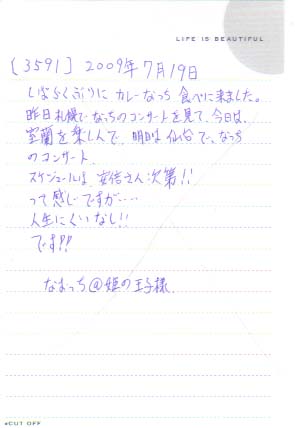 LIFE IS BEAUTIFUL
[3591] 2009年7月19日
しばらくぶりに カレーなっち 食べに来ました。
昨日札幌でなっちのコンサートを見て、今日は、
室蘭を楽しんで、明日は仙台で、なっち
のコンサート。
スケジュールは、安倍さん次第!!
って感じですが・・・・
人生にくいなし!!
です!!
なまっち@姫の王子様
CUT OFF